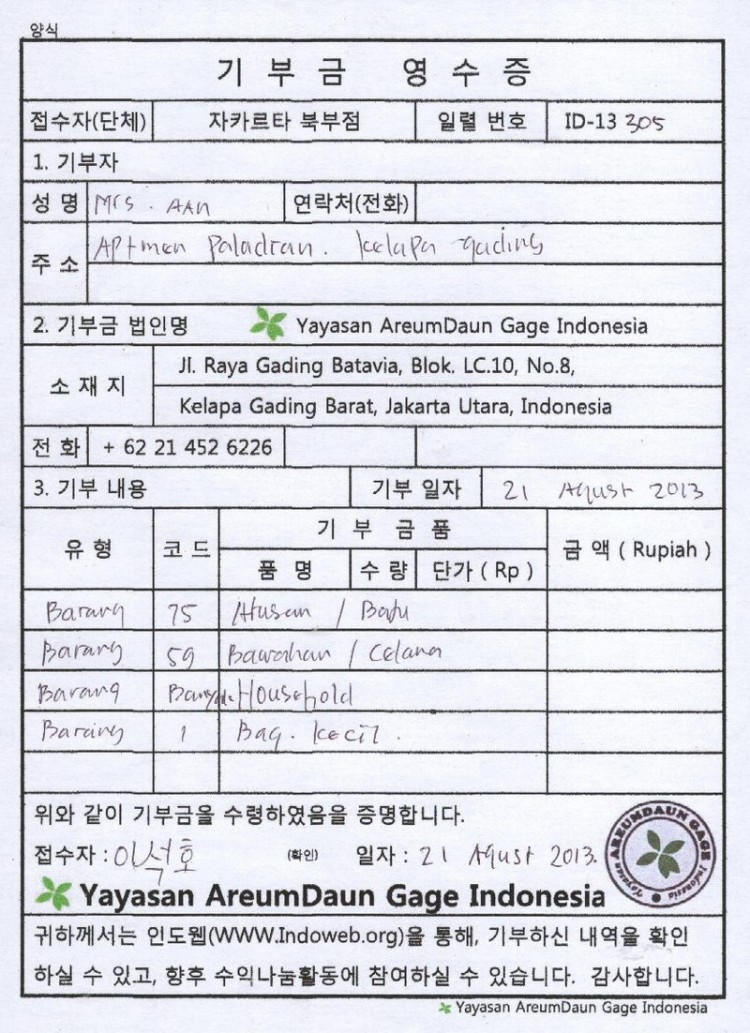 양식
기 부 금 영 수 증
접수자(단체) 자카르타 북부점 일렬 번호 ID-13 305
1. 기부자
성 명 Mrs. AAN 연락처(전화)
주 소 Aptmen Paladian. kelapa gading
2. 기부금 법인명 Yayasan AreumDaun Gage Indonesia
소 재 지 Jl. Raya Gading Batavia, Blok. LC.10, No.8,
Kelapa Gading Barat, Jakarta Utara, Indonesia
전 화 + 62 21 452 6226
3. 기부 내용 기부 일자 21 Agust 2013
유 형 코 드 기 부 금 품 금 액 ( Rupiah )
품 명 수 량 단가 ( Rp )
Barang 75 / Baju
Barang 59 Bawahan / Celana
Barang Household
Barang 1 Bag. kecil.
위와 같이 기부금을 수령하였음을 증명합니다.
접수자 : 이석호 (확인) 일자 : 21 Agust 2013.
Yayasan AREUMDAUN GAGE Indonesia
Yayasan AreumDaun Gage Indonesia
귀하께서는 인도웹(WWW.Indoweb.org)을 통해, 기부하신 내역을 확인
하실 수 있고, 향후 수익나눔활동에 참여하실 수 있습니다. 감사합니다.
Yayasan AreumDaun Gage Indonesia